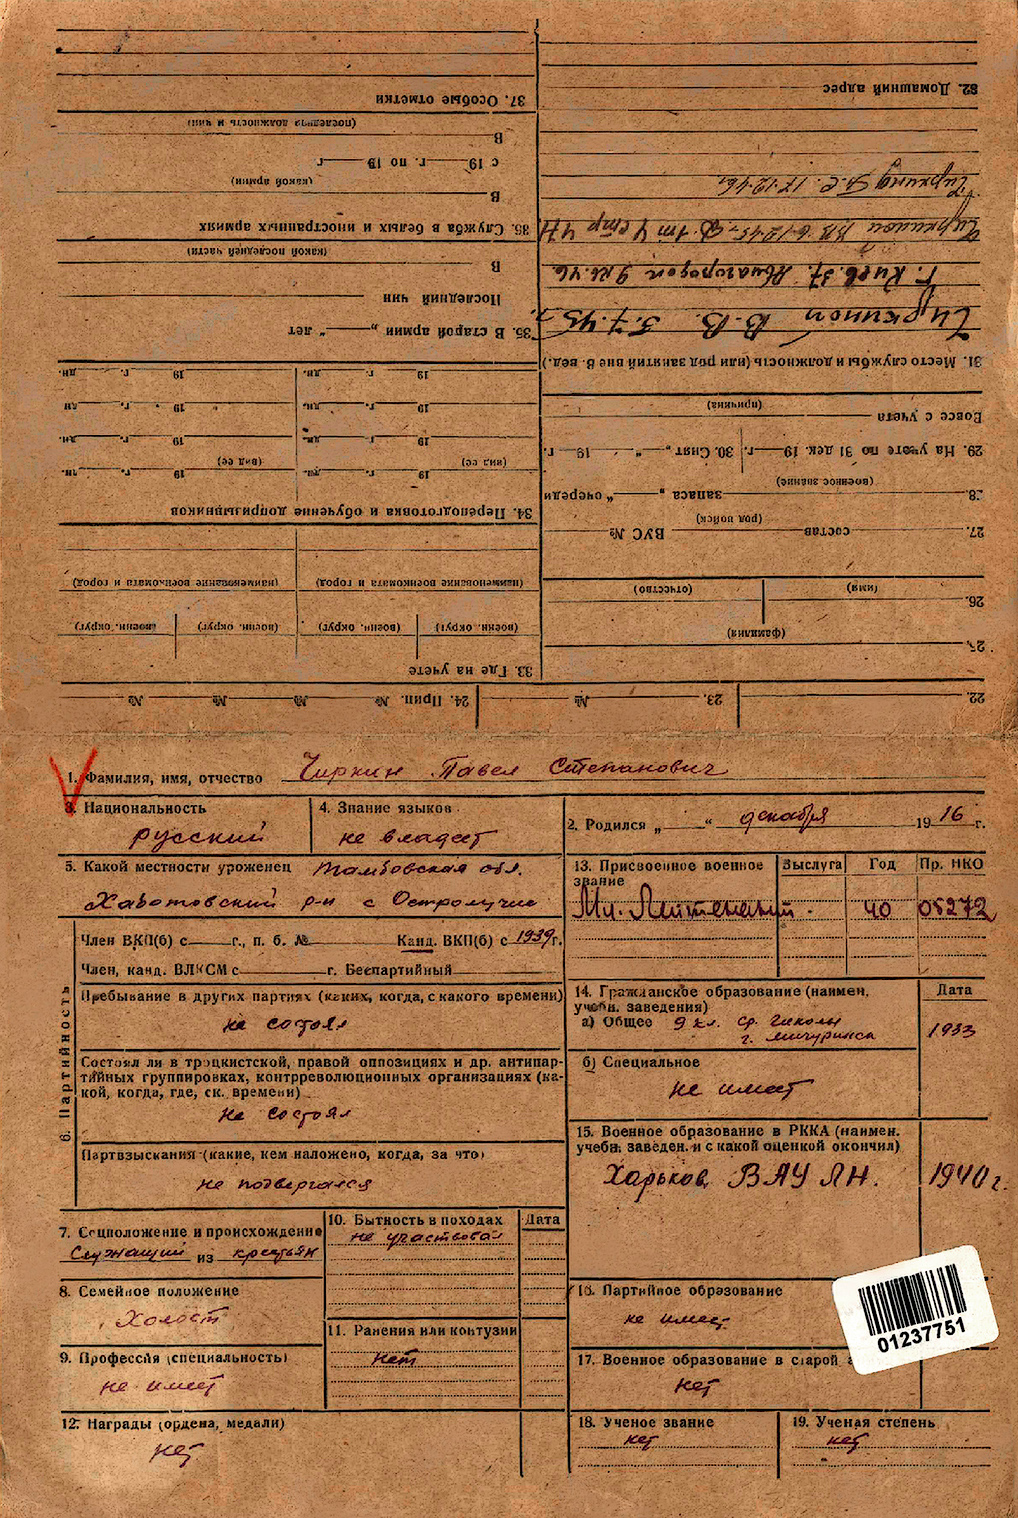 1. Фамилия, имя, отчество Чиркин Павел Степанович
3. Национальность
русский
4. Знание языков
не владеет
2. Родился „ “ декабря 1916 г.
5. Какой местности уроженец Тамбовская обл.
Хоботовский р-н с Остролучие
13. Присвоенное военное звание
Выслуга Год Пр. НКО
Мл. Лейтенант. 40 05272
6. Партийность
Член ВКП(б) с г., п. б. № Канд. ВКП(б) с 1939 г.
Член, канд. ВЛКСМ с г. Беспартийный
Пребывание в других партиях (каких, когда, с какого времени)
не состоял
Состоял ли в троцкистской, правой оппозициях и др. антипар-
тийных группировках, контрреволюционных организациях (ка-
кой, когда, где, ск. времени)
не состоял
Партвзыскания (какие, кем наложено, когда, за что)
не подвергался
14. Гражданское образование (наимен.
учебн. заведения)
Дата
а) Общее 9 кл. ср. школы
г. Мичуринска
1933
б) Специальное
не имеет
15. Военное образование в РККА (наимен.
учебн. заведен. и с какой оценкой окончил)
Харьков. ВАУ ЛН. 1940 г.
7. Соцположение и происхождение
Служащий из крестьян
8. Семейное положение
Холост
9. Профессия (специальность)
не имеет
10. Бытность в походах Дата
не участвовал
11. Ранения или контузии
нет
12. Награды (ордена, медали)
нет
16. Партийное образование
не имеет
17. Военное образование в старой
нет
18. Ученое звание
нет
19. Ученая степень
нет
01237751
22.
23. №
24. Прип. № № № №
26.
(фамилия)
26.
(имя) (отчество)
27. состав ВУС №
(род войск)
28. запаса „ “ очереди
(военное звание)
29. На учете по 31 дек. 19 г. 30. Снят „ “ 19 г.
Вовсе с учета
(причина)
31. Место службы и должность (или род занятий вне В. вед.)
Чиркиной В.В. 5.7.45 г.
г. Киев 37.
Чиркиной ВВ 6-12.45
Чиркину П.С. 17.12.46.
32. Домашний адрес
33. Где на учете
(военн. округ) (военн. округ) (военн. округ) (военн. округ)
(наименование военкомата и город) (наименование военкомата и город)
34. Переподготовка и обучение допризывников
19 г. дн. 19 г. дн.
(вид ее) (вид ее)
19 г. дн. 19 г. дн.
19 г. дн. 19 г. дн.
19 г. дн. 19 г. дн.
35. В старой армии „ “ лет
Последний чин
В
(какой последней части)
36. Служба в белых и иностранных армиях
В
(какой армии)
с 19 г. по 19 г
В
(последняя должность и чин)
37. Особые отметки